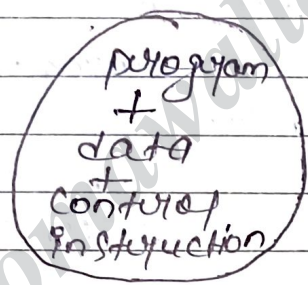 program
+
data
+
control
instruction